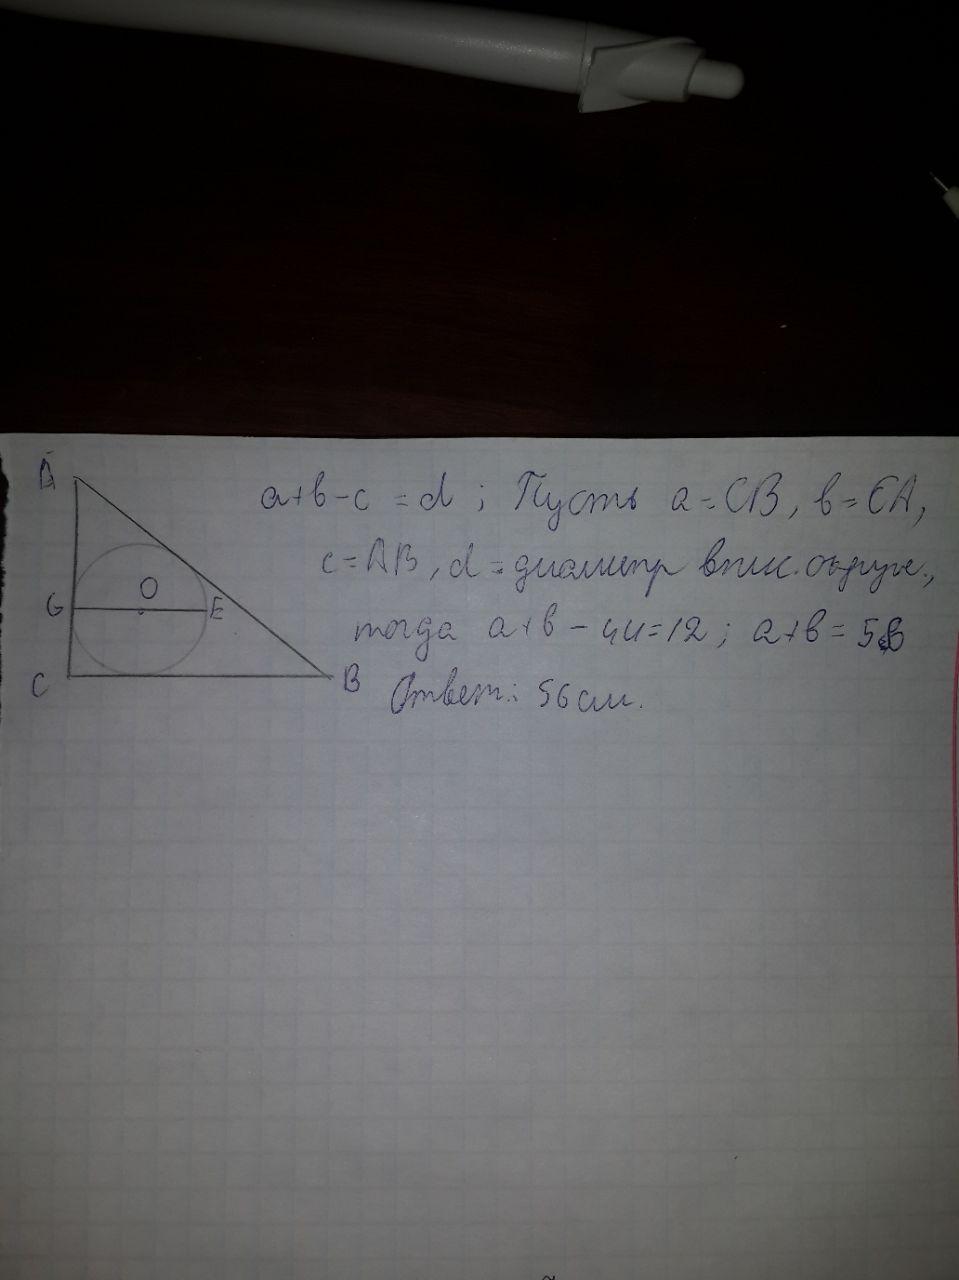 A
a+b-c = d ; Пусть a=CB, b=CA,
c=AB, d = диаметр впис. окруж.,
G O E
тогда a+b - 44=12 ; a+b = 56
C B
Ответ: 56 см.